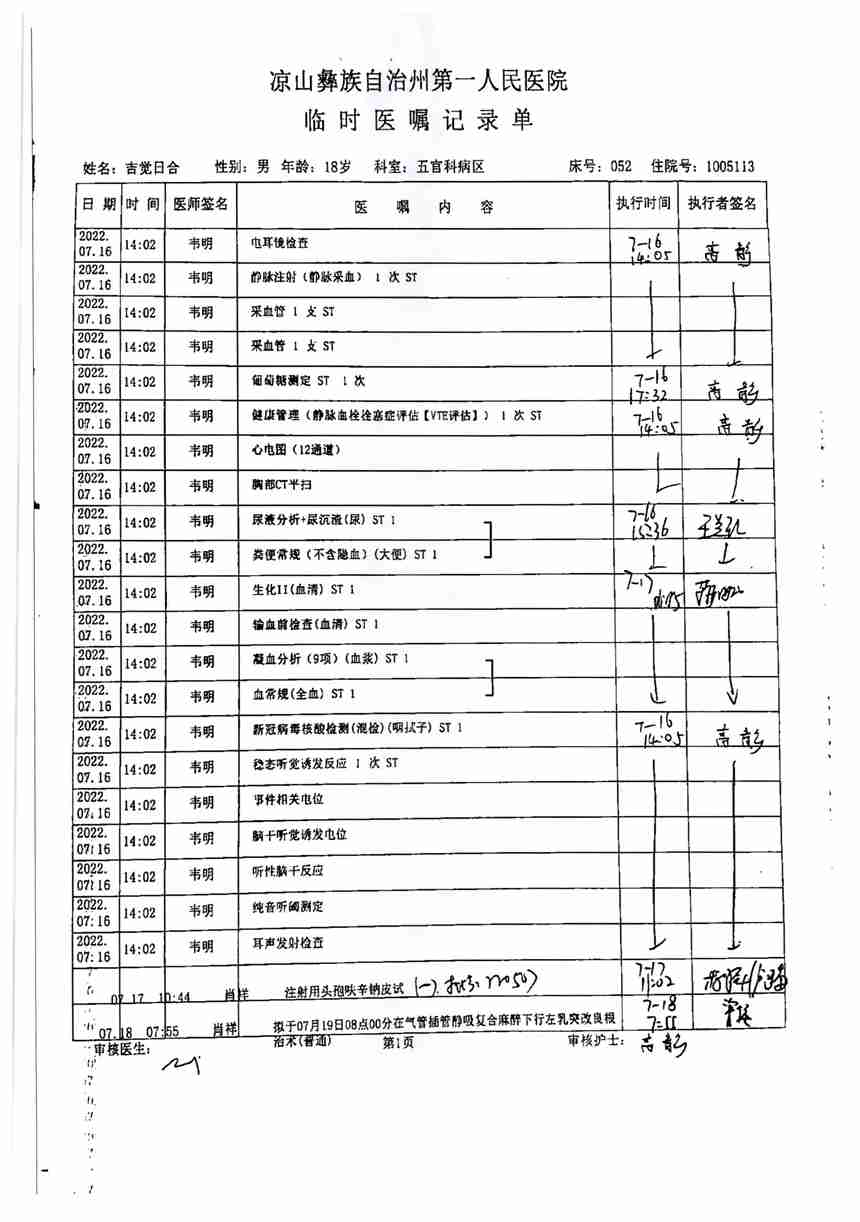 凉山彝族自治州第一人民医院
临时医嘱记录单
姓名：吉觉日合 性别：男 年龄：18岁 科室：五官科病区 床号：052 住院号：1005113
日期 时间 医师签名 医嘱内容 执行时间 执行者签名
2022.07.16 14:02 韦明 电耳镜检查 7-16 14:05
2022.07.16 14:02 韦明 静脉注射（静脉采血） 1 次 ST
2022.07.16 14:02 韦明 采血管 1 支 ST
2022.07.16 14:02 韦明 采血管 1 支 ST
2022.07.16 14:02 韦明 葡萄糖测定 ST 1 次 7-16 17:32
2022.07.16 14:02 韦明 健康管理（静脉血栓栓塞症评估【VTE评估】） 1 次 ST 7-16 14:05
2022.07.16 14:02 韦明 心电图（12通道）
2022.07.16 14:02 韦明 胸部CT平扫
2022.07.16 14:02 韦明 尿液分析+尿沉渣(尿) ST 1 7-16 15:36
2022.07.16 14:02 韦明 粪便常规（不含隐血）(大便) ST 1
2022.07.16 14:02 韦明 生化II(血清) ST 1 7-17
2022.07.16 14:02 韦明 输血前检查(血清) ST 1
2022.07.16 14:02 韦明 凝血分析（9项）(血浆) ST 1
2022.07.16 14:02 韦明 血常规(全血) ST 1
2022.07.16 14:02 韦明 新冠病毒核酸检测(混检)(咽拭子) ST 1 7-16 14:05
2022.07.16 14:02 韦明 稳态听觉诱发反应 1 次 ST
2022.07.16 14:02 韦明 事件相关电位
2022.07.16 14:02 韦明 脑干听觉诱发电位
2022.07.16 14:02 韦明 听性脑干反应
2022.07.16 14:02 韦明 纯音听阈测定
2022.07.16 14:02 韦明 耳声发射检查
07.17 10:44 肖祥 注射用头孢呋辛钠皮试 (-) 7-17 11:02
07.18 07:55 肖祥 拟于07月19日08点00分在气管插管静吸复合麻醉下行左乳突改良根 7-18
治术(普通)
审核医生： 第1页 审核护士：